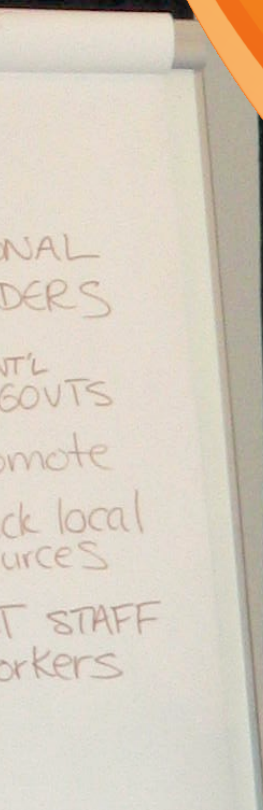 ONAL
DERS
NT'L
GOVTS
omote
ck local
urces
T STAFF
orkers